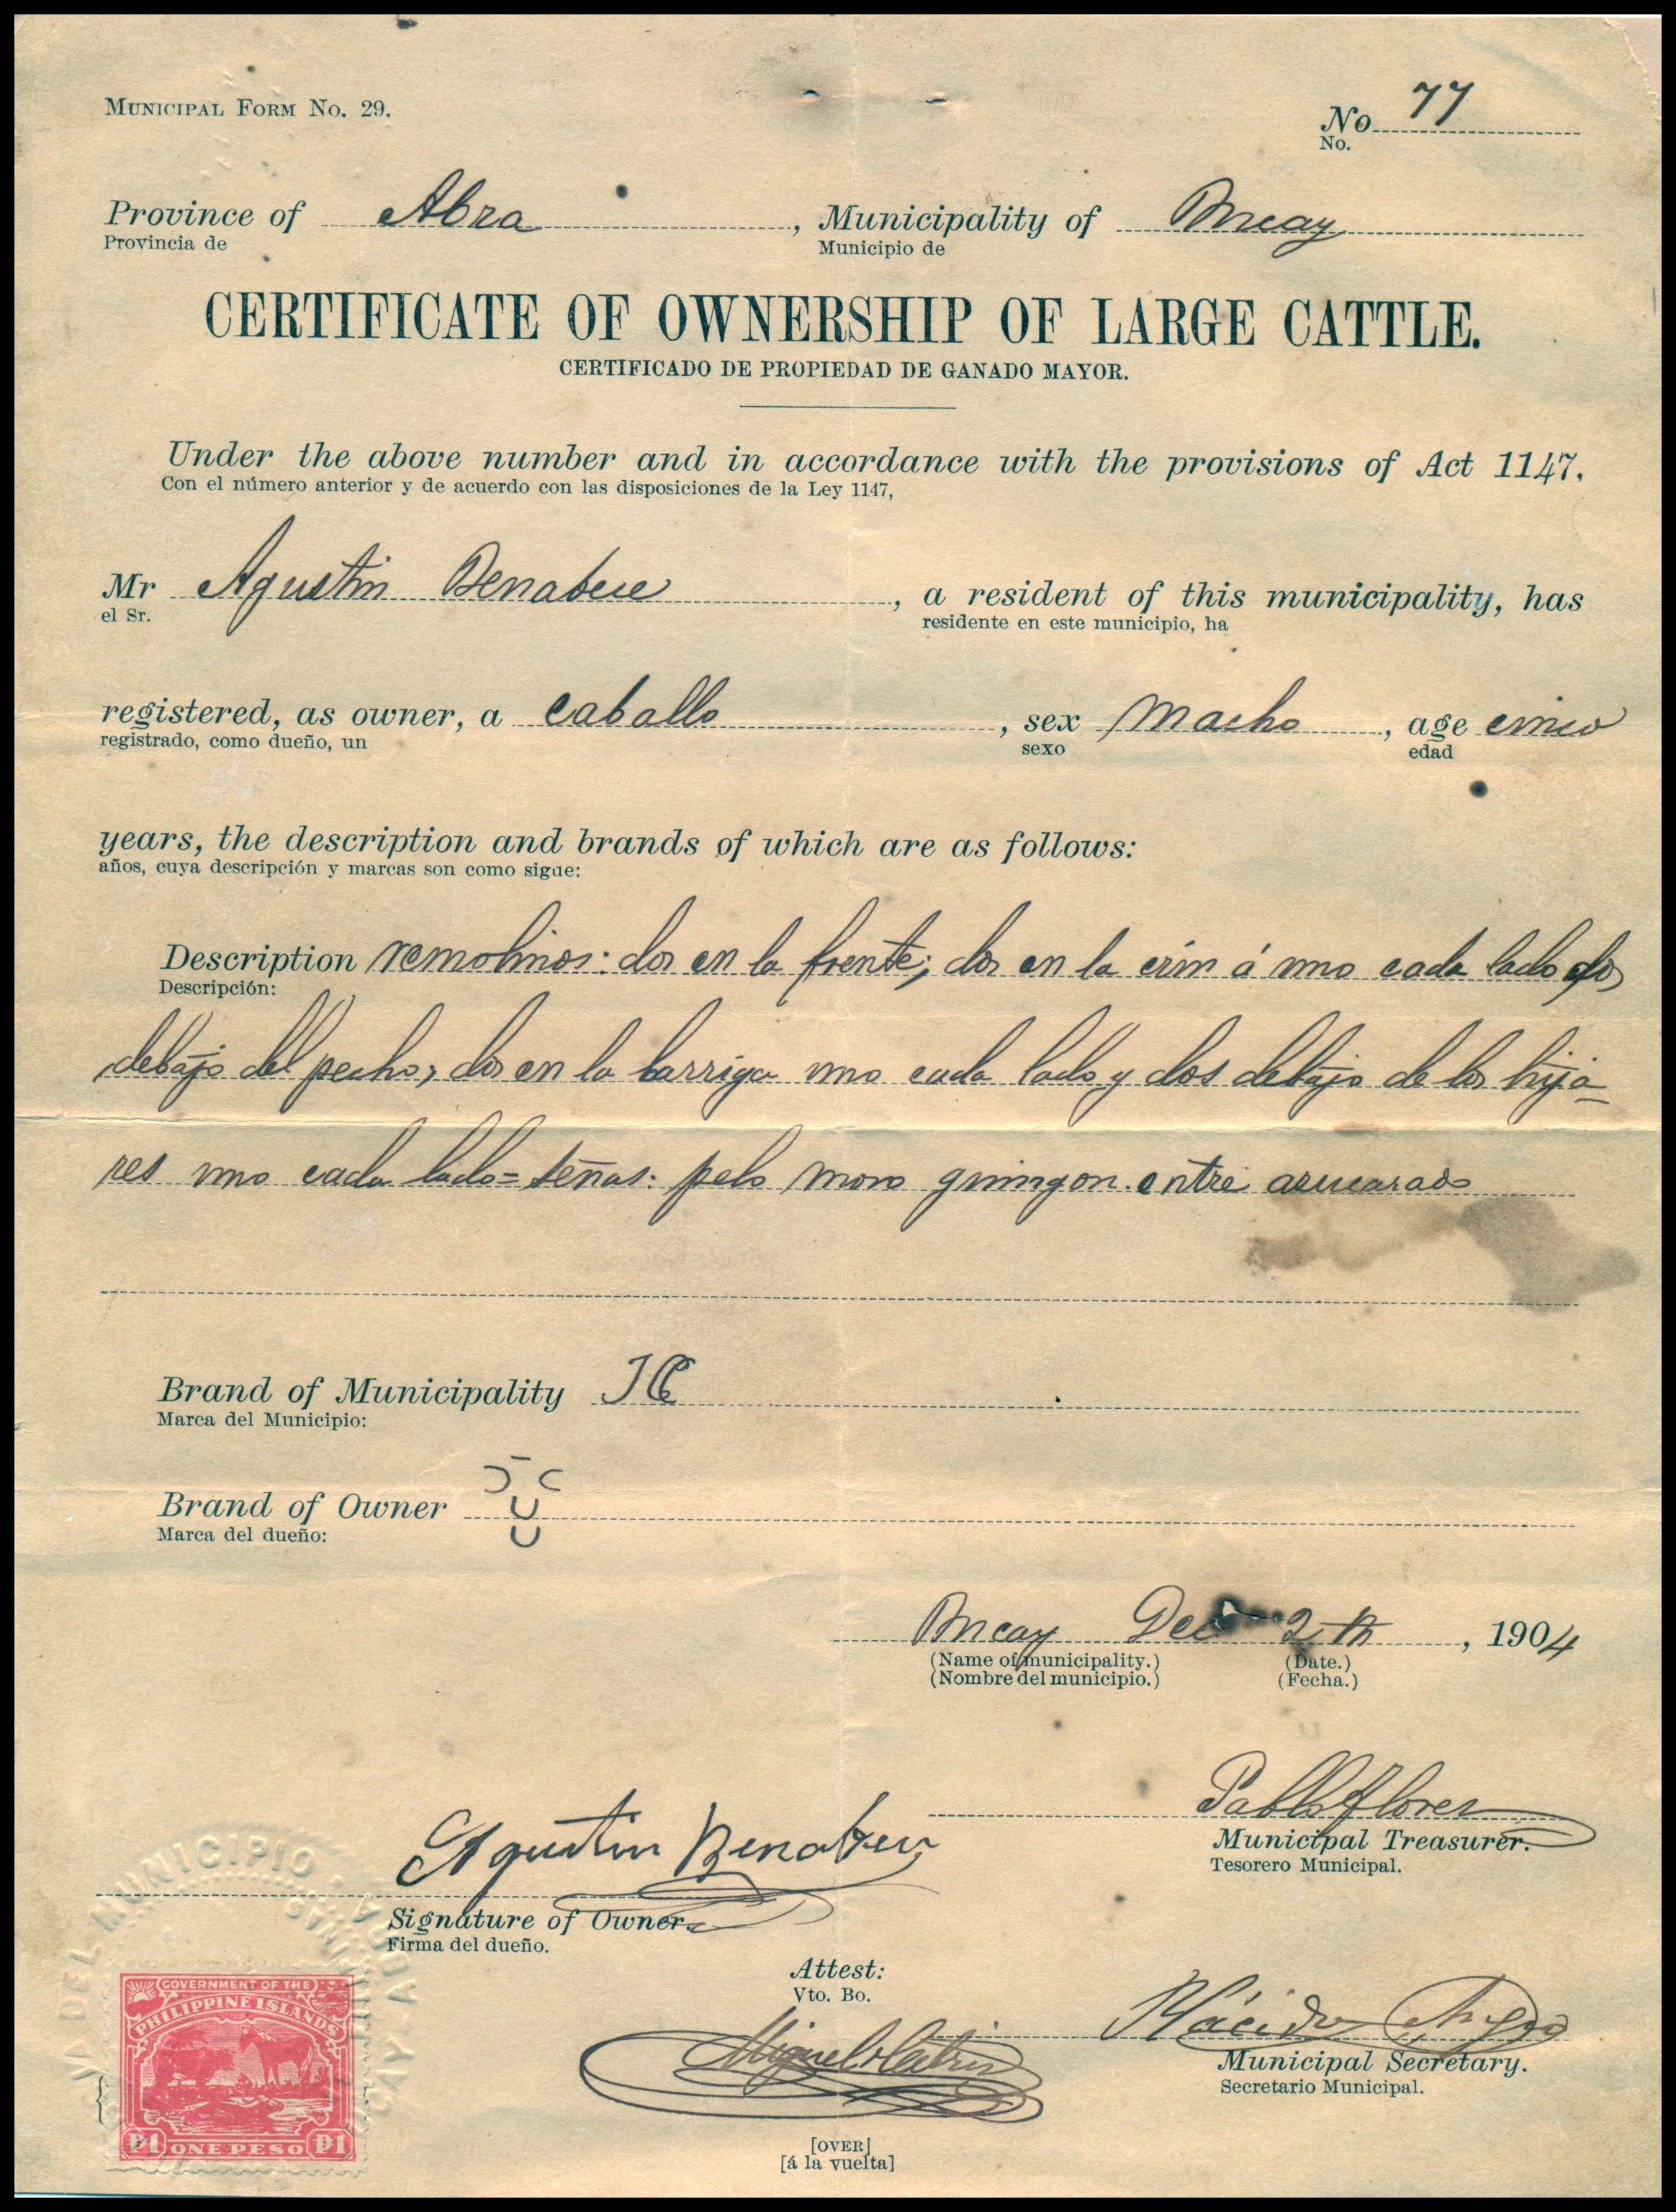 MUNICIPAL FORM No. 29.
No 77
No.
Province of Abra, Municipality of Bucay
Provincia de Municipio de
CERTIFICATE OF OWNERSHIP OF LARGE CATTLE.
CERTIFICADO DE PROPIEDAD DE GANADO MAYOR.
Under the above number and in accordance with the provisions of Act 1147,
Con el número anterior y de acuerdo con las disposiciones de la Ley 1147,
Mr Agustin, a resident of this municipality, has
el Sr. residente en este municipio, ha
registered, as owner, a caballo, sex macho, age cinco
registrado, como dueño, un sexo edad
years, the description and brands of which are as follows:
años, cuya descripción y marcas son como sigue:
Description remolinos: dos en la frente; dos en la crin á uno cada lado dos
Descripción:
debajo del pecho, dos en la barriga uno cada lado y dos debajo de los hija-
res uno cada lado = señas: pelo moro guingon entre azucarado
Brand of Municipality
Marca del Municipio:
Brand of Owner
Marca del dueño:
Bucay Dec 2th, 1904
(Name of municipality.) (Date.)
(Nombre del municipio.) (Fecha.)
Pablo Flores
Municipal Treasurer.
Tesorero Municipal.
Agustin
Signature of Owner.
Firma del dueño.
Attest:
Vto. Bo.
Miguel
Plácido
Municipal Secretary.
Secretario Municipal.
GOVERNMENT OF THE
PHILIPPINE ISLANDS
₱1 ONE PESO ₱1
[OVER]
[á la vuelta]